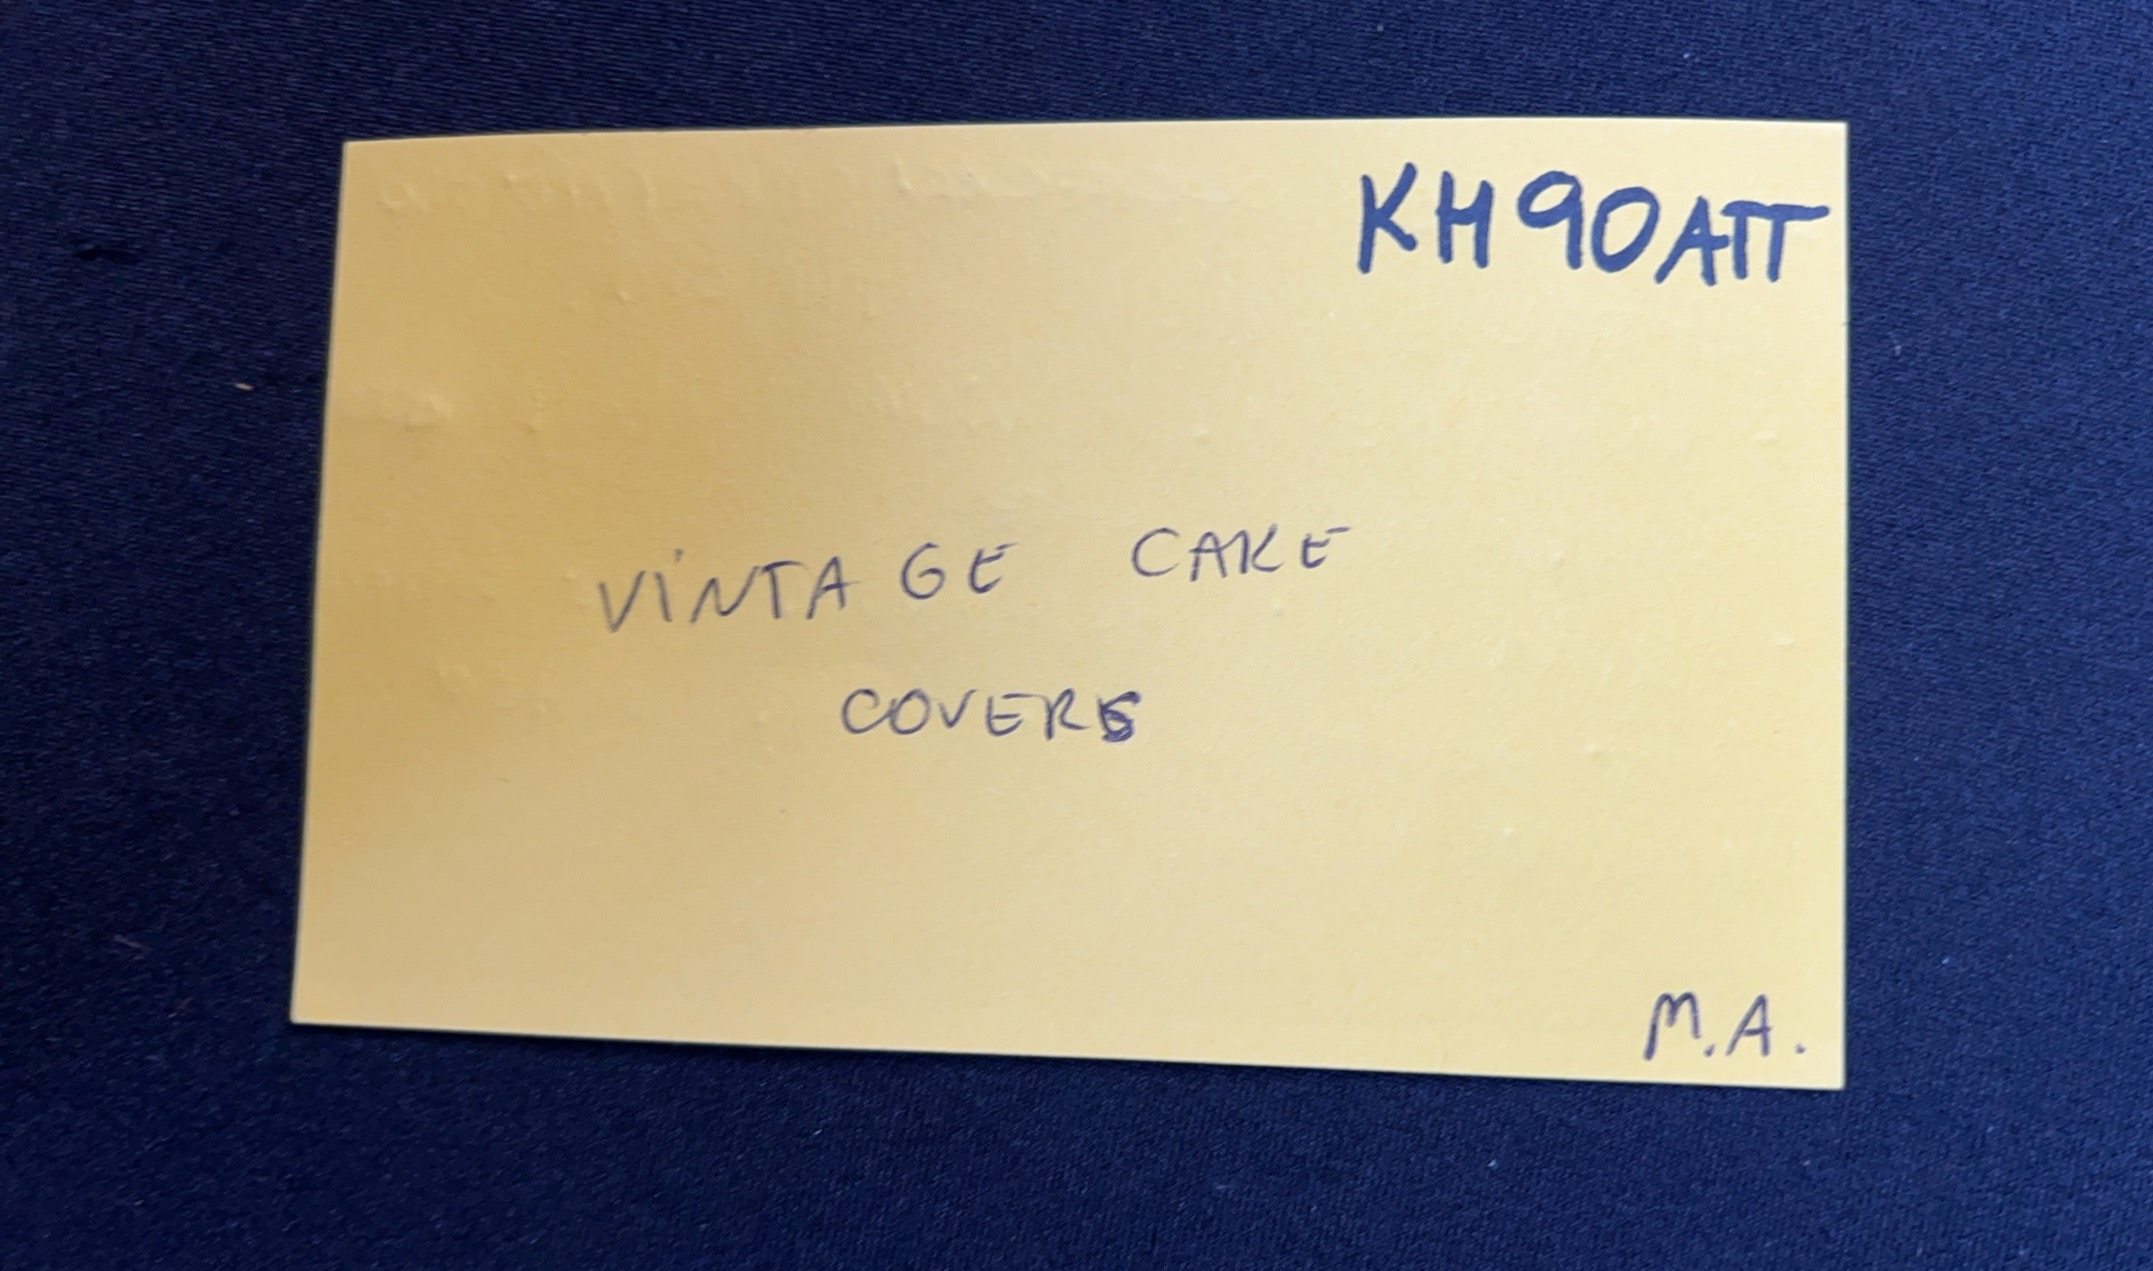 KH90ATT
VİNTAGE CAKE
COVERS
M.A.